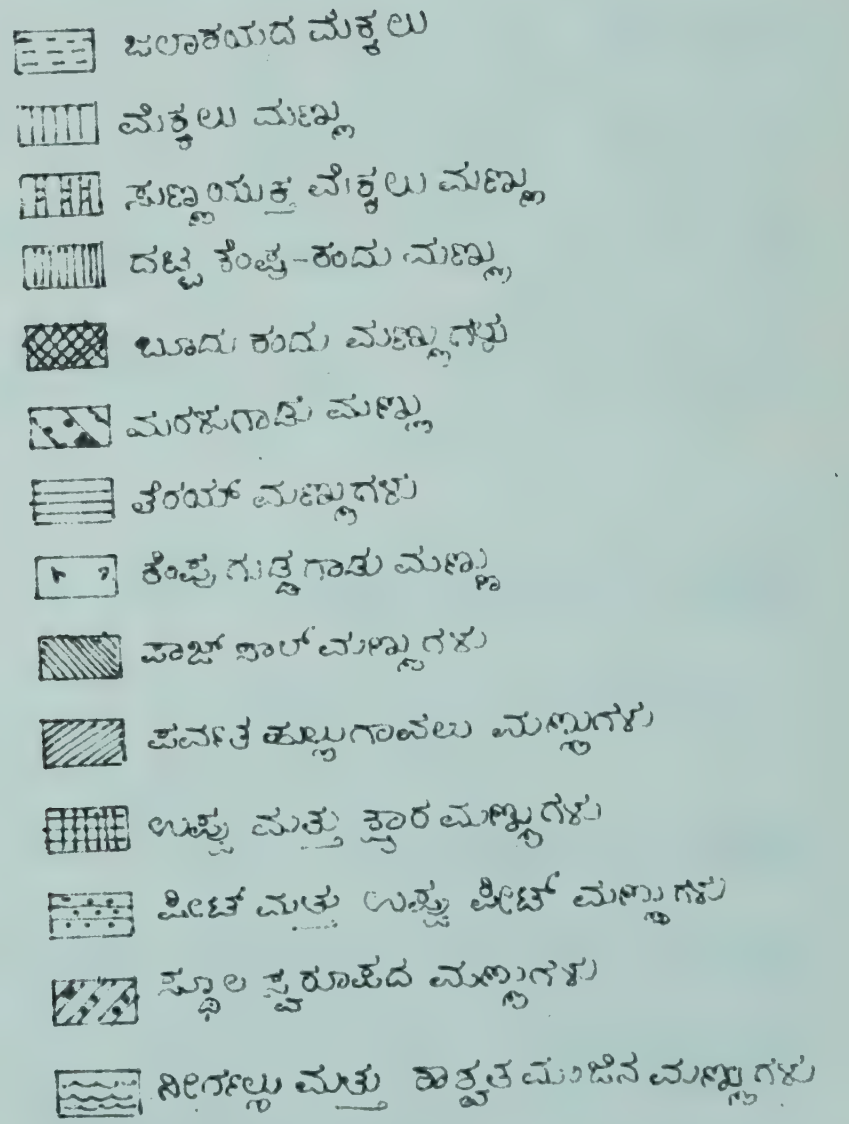 ಜಲಾಶಯದ ಮೆಕ್ಕಲು
ಮೆಕ್ಕಲು ಮಣ್ಣು
ಸುಣ್ಣಯುಕ್ತ ಮೆಕ್ಕಲು ಮಣ್ಣು
ದಟ್ಟ ಕೆಂಪು-ಕಂದು ಮಣ್ಣು
ಬೂದು ಕಂದು ಮಣ್ಣುಗಳು
ಮರಳುಗಾಡು ಮಣ್ಣು
ತೆರಯ್ ಮಣ್ಣುಗಳು
ಕೆಂಪು ಗುಡ್ಡಗಾಡು ಮಣ್ಣು
ಪಾಜ್ ಸಾಲ್ ಮಣ್ಣುಗಳು
ಪರ್ವತ ಹುಲ್ಲುಗಾವಲು ಮಣ್ಣುಗಳು
ಉಪ್ಪು ಮತ್ತು ಕ್ಷಾರ ಮಣ್ಣುಗಳು
ಪೀಟ್ ಮತ್ತು ಉಪ್ಪು ಪೀಟ್ ಮಣ್ಣುಗಳು
ಸ್ಥೂಲ ಸ್ವರೂಪದ ಮಣ್ಣುಗಳು
ನೀರ್ಗಲ್ಲು ಮತ್ತು ಶಾಶ್ವತ ಮಂಜಿನ ಮಣ್ಣುಗಳು